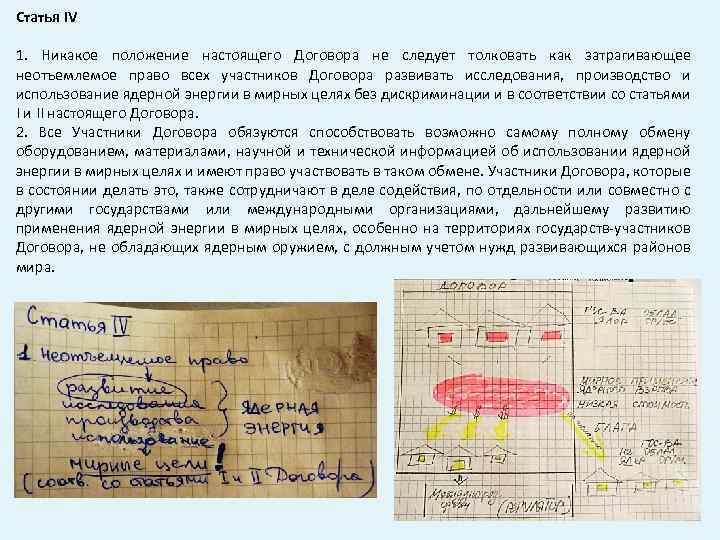 Статья IV
1. Никакое положение настоящего Договора не следует толковать как затрагивающее
неотъемлемое право всех участников Договора развивать исследования, производство и
использование ядерной энергии в мирных целях без дискриминации и в соответствии со статьями
I и II настоящего Договора.
2. Все Участники Договора обязуются способствовать возможно самому полному обмену
оборудованием, материалами, научной и технической информацией об использовании ядерной
энергии в мирных целях и имеют право участвовать в таком обмене. Участники Договора, которые
в состоянии делать это, также сотрудничают в деле содействия, по отдельности или совместно с
другими государствами или международными организациями, дальнейшему развитию
применения ядерной энергии в мирных целях, особенно на территориях государств-участников
Договора, не обладающих ядерным оружием, с должным учетом нужд развивающихся районов
мира.
Статья IV
1 Неотъемлемое право
развитие
исследования
производства
использование
ЯДЕРНАЯ
ЭНЕРГИЯ
мирные цели!
(соотв. со статьями I и II Договора)
ДОГОВОР
ГОС-ВА ОБЛАД.
МИРНОЕ
ЯДЕРНОГО ВЗРЫВА
НИЗКАЯ СТОИМОСТЬ
$ $ $
БЛАГА
ГОС-ВА
НЕ ОБЛАД
ЯДЕР
Международ
(РЕГУЛЯТОР)